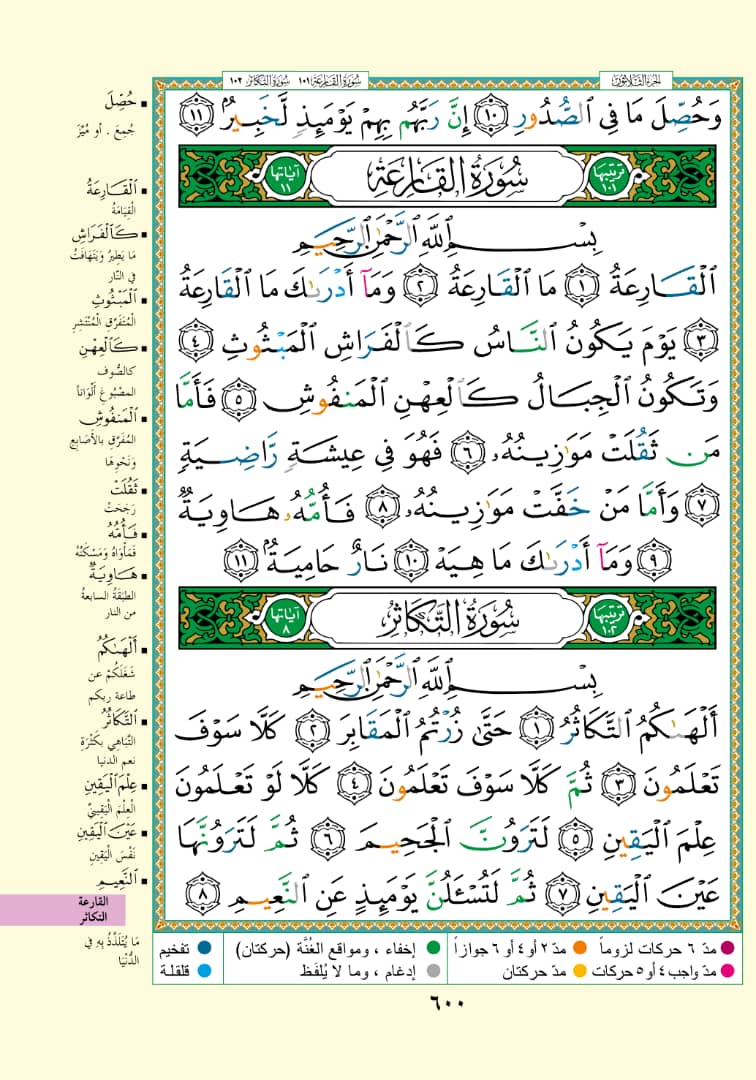 سُورَةُ القَارِعَة ١٠١ سُورَةُ التَّكَاثُر ١٠٢
الجزء الثلاثون
وَحُصِّلَ مَا فِى ٱلصُّدُورِ ١٠ إِنَّ رَبَّهُم بِهِمْ يَوْمَئِذٍ لَّخَبِيرٌۢ ١١
ترتيبها ١٠١
سُورَةُ القَارِعَة
آياتها ١١
بِسْمِ ٱللَّهِ ٱلرَّحْمَٰنِ ٱلرَّحِيمِ
ٱلْقَارِعَةُ ١ مَا ٱلْقَارِعَةُ ٢ وَمَآ أَدْرَىٰكَ مَا ٱلْقَارِعَةُ
٣ يَوْمَ يَكُونُ ٱلنَّاسُ كَٱلْفَرَاشِ ٱلْمَبْثُوثِ ٤
وَتَكُونُ ٱلْجِبَالُ كَٱلْعِهْنِ ٱلْمَنفُوشِ ٥ فَأَمَّا
مَن ثَقُلَتْ مَوَٰزِينُهُۥ ٦ فَهُوَ فِى عِيشَةٍ رَّاضِيَةٍ
٧ وَأَمَّا مَنْ خَفَّتْ مَوَٰزِينُهُۥ ٨ فَأُمُّهُۥ هَاوِيَةٌ
٩ وَمَآ أَدْرَىٰكَ مَا هِيَهْ ١٠ نَارٌ حَامِيَةٌۢ ١١
ترتيبها ١٠٢
سُورَةُ التَّكَاثُر
آياتها ٨
بِسْمِ ٱللَّهِ ٱلرَّحْمَٰنِ ٱلرَّحِيمِ
أَلْهَىٰكُمُ ٱلتَّكَاثُرُ ١ حَتَّىٰ زُرْتُمُ ٱلْمَقَابِرَ ٢ كَلَّا سَوْفَ
تَعْلَمُونَ ٣ ثُمَّ كَلَّا سَوْفَ تَعْلَمُونَ ٤ كَلَّا لَوْ تَعْلَمُونَ
عِلْمَ ٱلْيَقِينِ ٥ لَتَرَوُنَّ ٱلْجَحِيمَ ٦ ثُمَّ لَتَرَوُنَّهَا
عَيْنَ ٱلْيَقِينِ ٧ ثُمَّ لَتُسْـَٔلُنَّ يَوْمَئِذٍ عَنِ ٱلنَّعِيمِ ٨
حُصِّلَ
جُمِعَ . أو مُيِّزَ
ٱلْقَارِعَةُ
الْقِيَامَةُ
كَٱلْفَرَاشِ
مَا يَطِيرُ وَيَتَهَافَتُ
فِي النَّارِ
ٱلْمَبْثُوثِ
الْمُتَفَرِّقِ الْمُنْتَشِرِ
كَٱلْعِهْنِ
كالصُّوف
المصْبُوغِ ألْوَاناً
ٱلْمَنفُوشِ
المُفَرَّقِ بِالأَصَابِعِ
وَنَحْوِهَا
ثَقُلَتْ
رَجَحَتْ
فَأُمُّهُ
فَمَأْوَاهُ وَمَسْكَنُهُ
هَاوِيَةٌ
الطبَقَةُ السابعةُ
من النار
أَلْهَىٰكُمُ
شَغَلَكُمْ عن
طاعة ربكم
ٱلتَّكَاثُرُ
التَّبَاهِي بكَثْرَةِ
نعم الدنيا
عِلْمَ ٱلْيَقِينِ
الْعِلْمَ الْيَقِينِيَّ
عَيْنَ ٱلْيَقِينِ
نَفْسَ الْيَقِينِ
ٱلنَّعِيمِ
القارعة
التكاثر
مَا يُتَلَذَّذُ بِهِ فِي
الدُّنْيَا
مدّ ٦ حركات لزوماً
مدّ ٢ أو ٤ أو ٦ جوازاً
إخفاء ، ومواقع الغُنَّة (حركتان)
تفخيم
مدّ واجب ٤ أو ٥ حركات
مدّ حركتان
إدغام ، وما لا يُلفَظ
قلقلة
٦٠٠